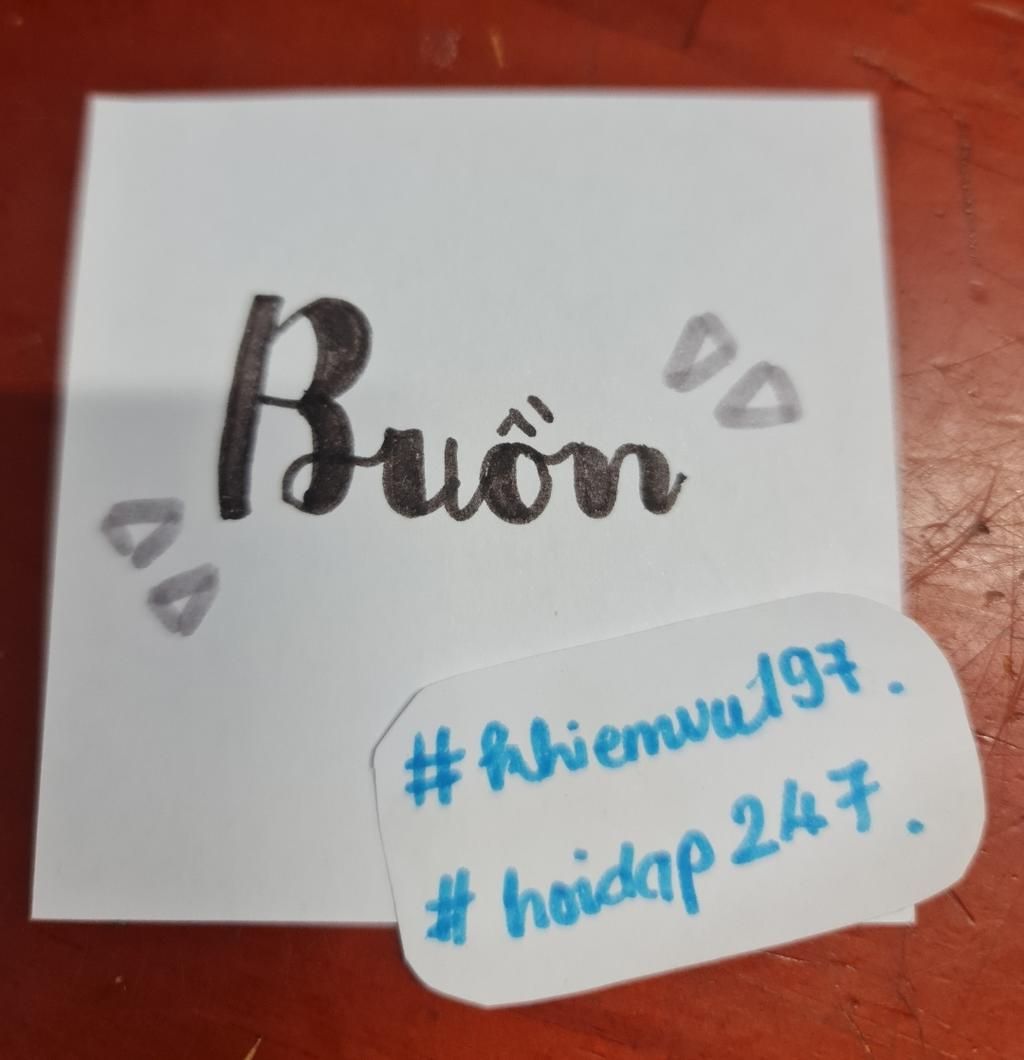 Buồn
#khiemvu197.
#hoidap247.